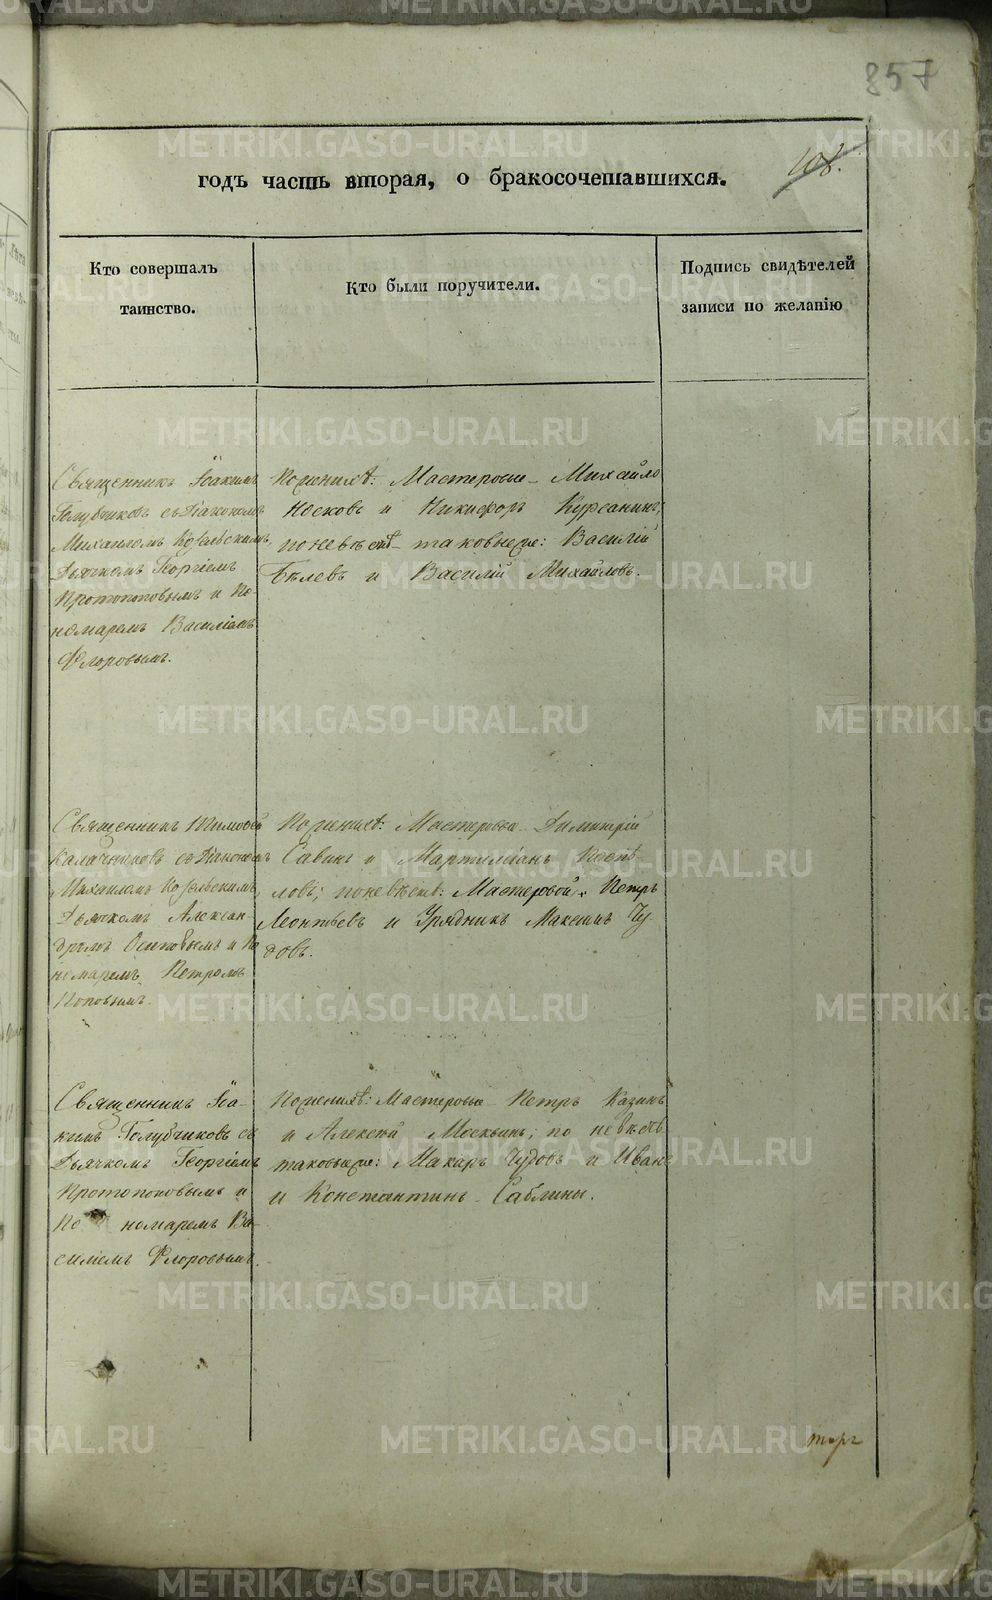 857
108.
годъ часть вторая, о бракосочетавшихся.
Кто совершалъ
таинство.
Кто были поручители.
Подпись свидѣтелей
записи по желанію
Священникъ Іоакимъ
Голубчиковъ съ Діакономъ
Михаиломъ Козельскимъ,
Дьячкомъ Георгіемъ
Протопоповымъ и По-
номаремъ Василіемъ
Флоровымъ.
По женихѣ: Мастеровые Михайло
Носковъ и Никифоръ Курсанинъ,
по невѣстѣ таковые же: Василій
Бѣлевъ и Василій Михайловъ.
Священникъ Тимофей
Калачниковъ съ Діакономъ
Михаиломъ Козельскимъ,
Дьячкомъ Алексан-
дромъ Осиповымъ и По
номаремъ Петромъ
Поповымъ.
По женихѣ: Мастеровые Димитрій
Савинъ и Мартиміанъ Поспѣ-
ловъ; по невѣстѣ: Мастеровой Петръ
Леонтьевъ и Урядникъ Максимъ Чу
довъ.
Священникъ Іоа-
кимъ Голубчиковъ съ
Дьячкомъ Георгіемъ
Протопоповымъ и
По номаремъ Ва-
силіемъ Флоровымъ.
По женихѣ: Мастеровые Петръ Казинъ
и Алексѣй Москвинъ; по невѣстѣ
таковые же: Макаръ Чудовъ и Иванъ
и Константинъ Саблины.
METRIKI.GASO-URAL.RU